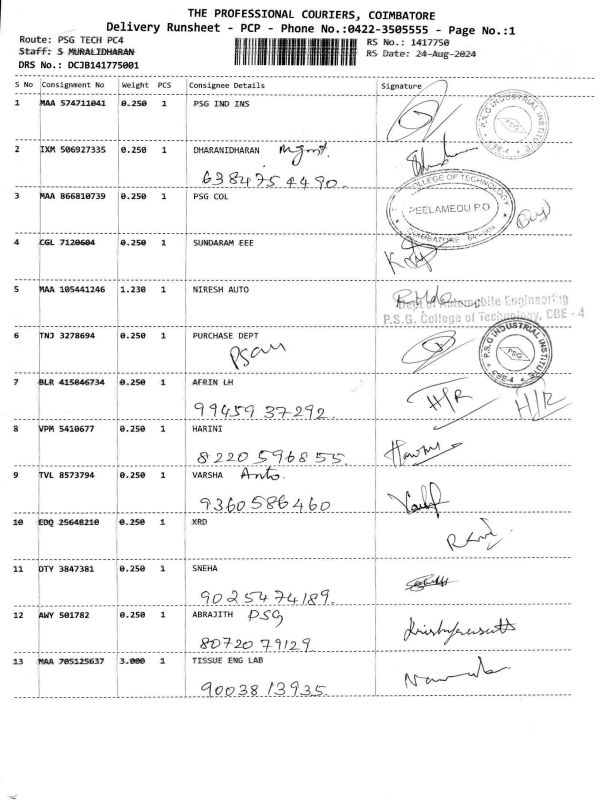 THE PROFESSIONAL COURIERS, COIMBATORE
Delivery Runsheet - PCP - Phone No.:0422-3505555 - Page No.:1
Route: PSG TECH PC4
RS No.: 1417750
Staff: S MURALIDHARAN
RS Date: 24-Aug-2024
DRS No.: DCJB141775001
S No Consignment No Weight PCS Consignee Details Signature
1 MAA 574711041 0.250 1 PSG IND INS
P.S.G INDUSTRIAL INSTITUTE
PSG
CBE-4
2 IXM 506927335 0.250 1 DHARANIDHARAN Mgmt.
6384754490.
3 MAA 866810739 0.250 1 PSG COL
COLLEGE OF TECHNOLOGY
PEELAMEDU P.O
COIMBATORE
4 CGL 7120604 0.250 1 SUNDARAM EEE
5 MAA 105441246 1.230 1 NIRESH AUTO
Dept of Automobile Engineering
P.S.G. College of Technology, CBE - 4
6 TNJ 3278694 0.250 1 PURCHASE DEPT
P.S.G INDUSTRIAL INSTITUTE
PSG
CBE-4
7 BLR 415846734 0.250 1 AFRIN LH
H/R H/R
99459 37292.
8 VPM 5410677 0.250 1 HARINI
8220596855.
9 TVL 8573794 0.250 1 VARSHA Anto.
9360586460
10 EDQ 25648210 0.250 1 XRD
11 OTY 3847381 0.250 1 SNEHA
9025474189.
12 AWY 501782 0.250 1 ABRAJITH PSG
80720 79129
13 MAA 705125637 3.000 1 TISSUE ENG LAB
9003813935.